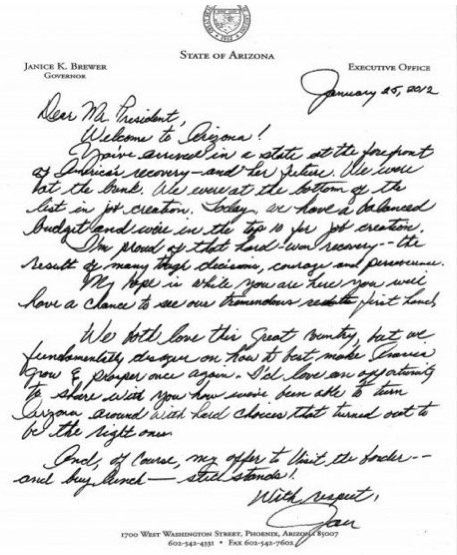 STATE OF ARIZONA
JANICE K. BREWER
GOVERNOR
EXECUTIVE OFFICE
January 25, 2012
Dear Mr. President,
Welcome to Arizona!
You've arrived in a state at the forefront
of America's recovery - and her future. We were
at the brink. We were at the bottom of the
list in job creation. Today, we have a balanced
budget and we're in the top 10 for job creation.
I'm proud of that hard-won recovery -- the
result of many tough decisions, courage and perseverance.
My hope is while you are here you will
have a chance to see our tremendous results first hand.
We both love this great country, but we
fundamentally disagree on how to best make America
grow & prosper once again. I'd love an opportunity
to share with you how we've been able to turn
Arizona around with hard choices that turned out to
be the right ones.
And, of course, my offer to visit the border --
and buy lunch - still stands!
With respect,
Jan
1700 WEST WASHINGTON STREET, PHOENIX, ARIZONA 85007
602-542-4331 • FAX 602-542-7602